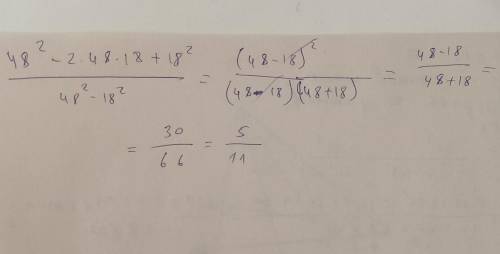 (48² - 2·48·18 + 18²) / (48² - 18²) = (48-18)² / ((48-18)(48+18)) = (48-18) / (48+18) =
= 30/66 = 5/11